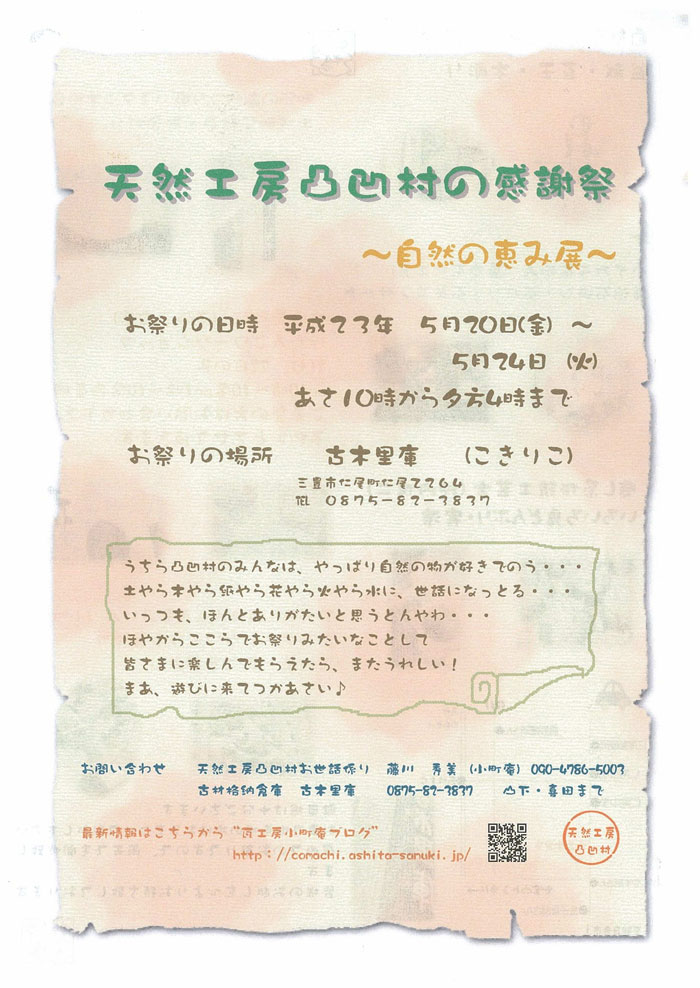 天然工房凸凹村の感謝祭
～自然の恵み展～
お祭りの日時 平成23年 5月20日(金) ～
5月24日 (火)
あさ10時から夕方4時まで
お祭りの場所 古木里庫 (こきりこ)
三豊市仁尾町仁尾乙264
TEL 0875-82-3837
うちら凸凹村のみんなは、やっぱり自然の物が好きでのう・・・
土やら木やら紙やら花やら火やら水に、世話になっとる・・・
いっつも、ほんとありがたいと思うとんやわ・・・
ほやからここらでお祭りみたいなことして
皆さまに楽しんでもらえたら、またうれしい！
まあ、遊びに来てつかあさい♪
お問い合わせ 天然工房凸凹村お世話係り 藤川 秀美 (小町庵) 090-4786-5003
古材格納倉庫 古木里庫 0875-82-3837 山下・喜田まで
最新情報はこちらから "匠工房小町庵ブログ"
http://comachi.ashita-sanuki.jp/
天然工房
凸凹村